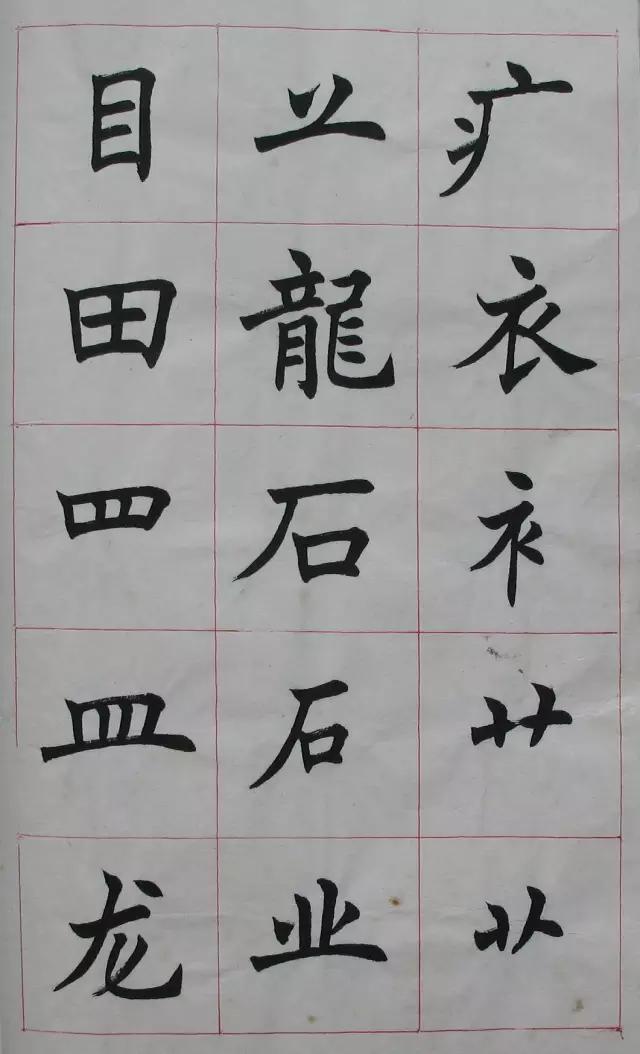 疒衣衤艹
䒑龍石石业
目田罒皿龙